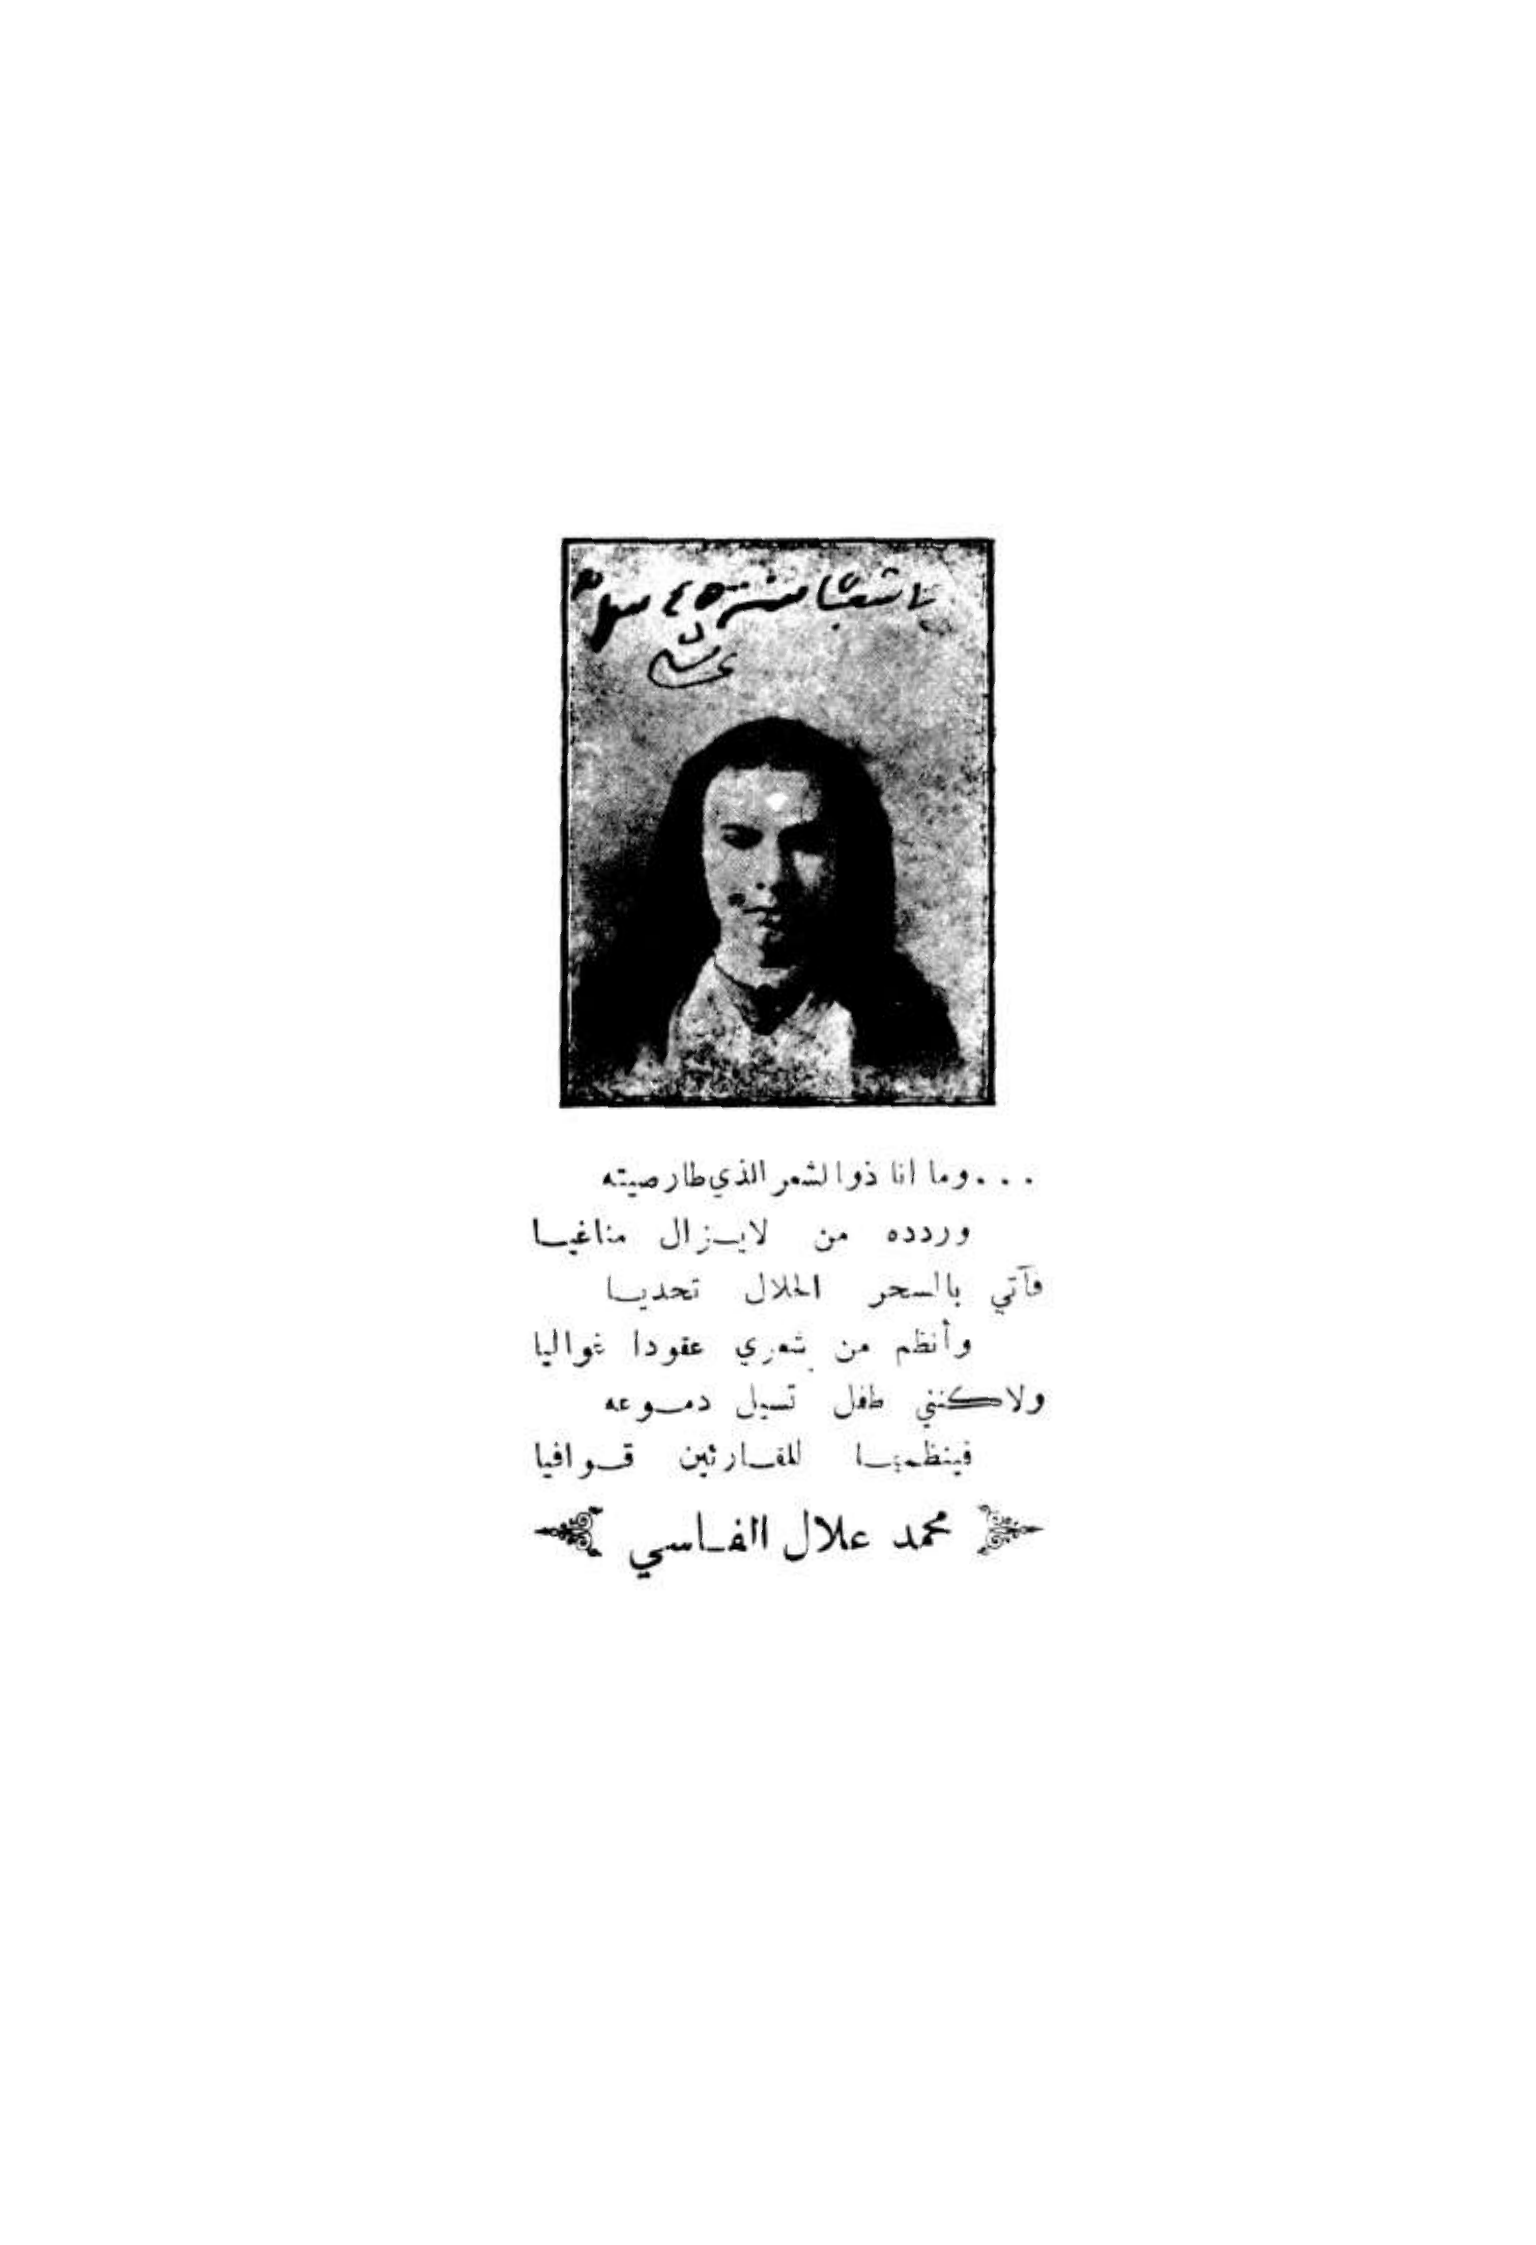 ...وما أنا ذو الشعر الذي طار صيته
وردده من لايـزال مناغيـا
فآتي بالسحر الحلال تحديـا
وأنظم من شعري عقودا غواليا
ولاكنني طفل تسيل دمـوعه
فينظمهـا للقـارئين قـوافيا
محمد علال الفـاسي